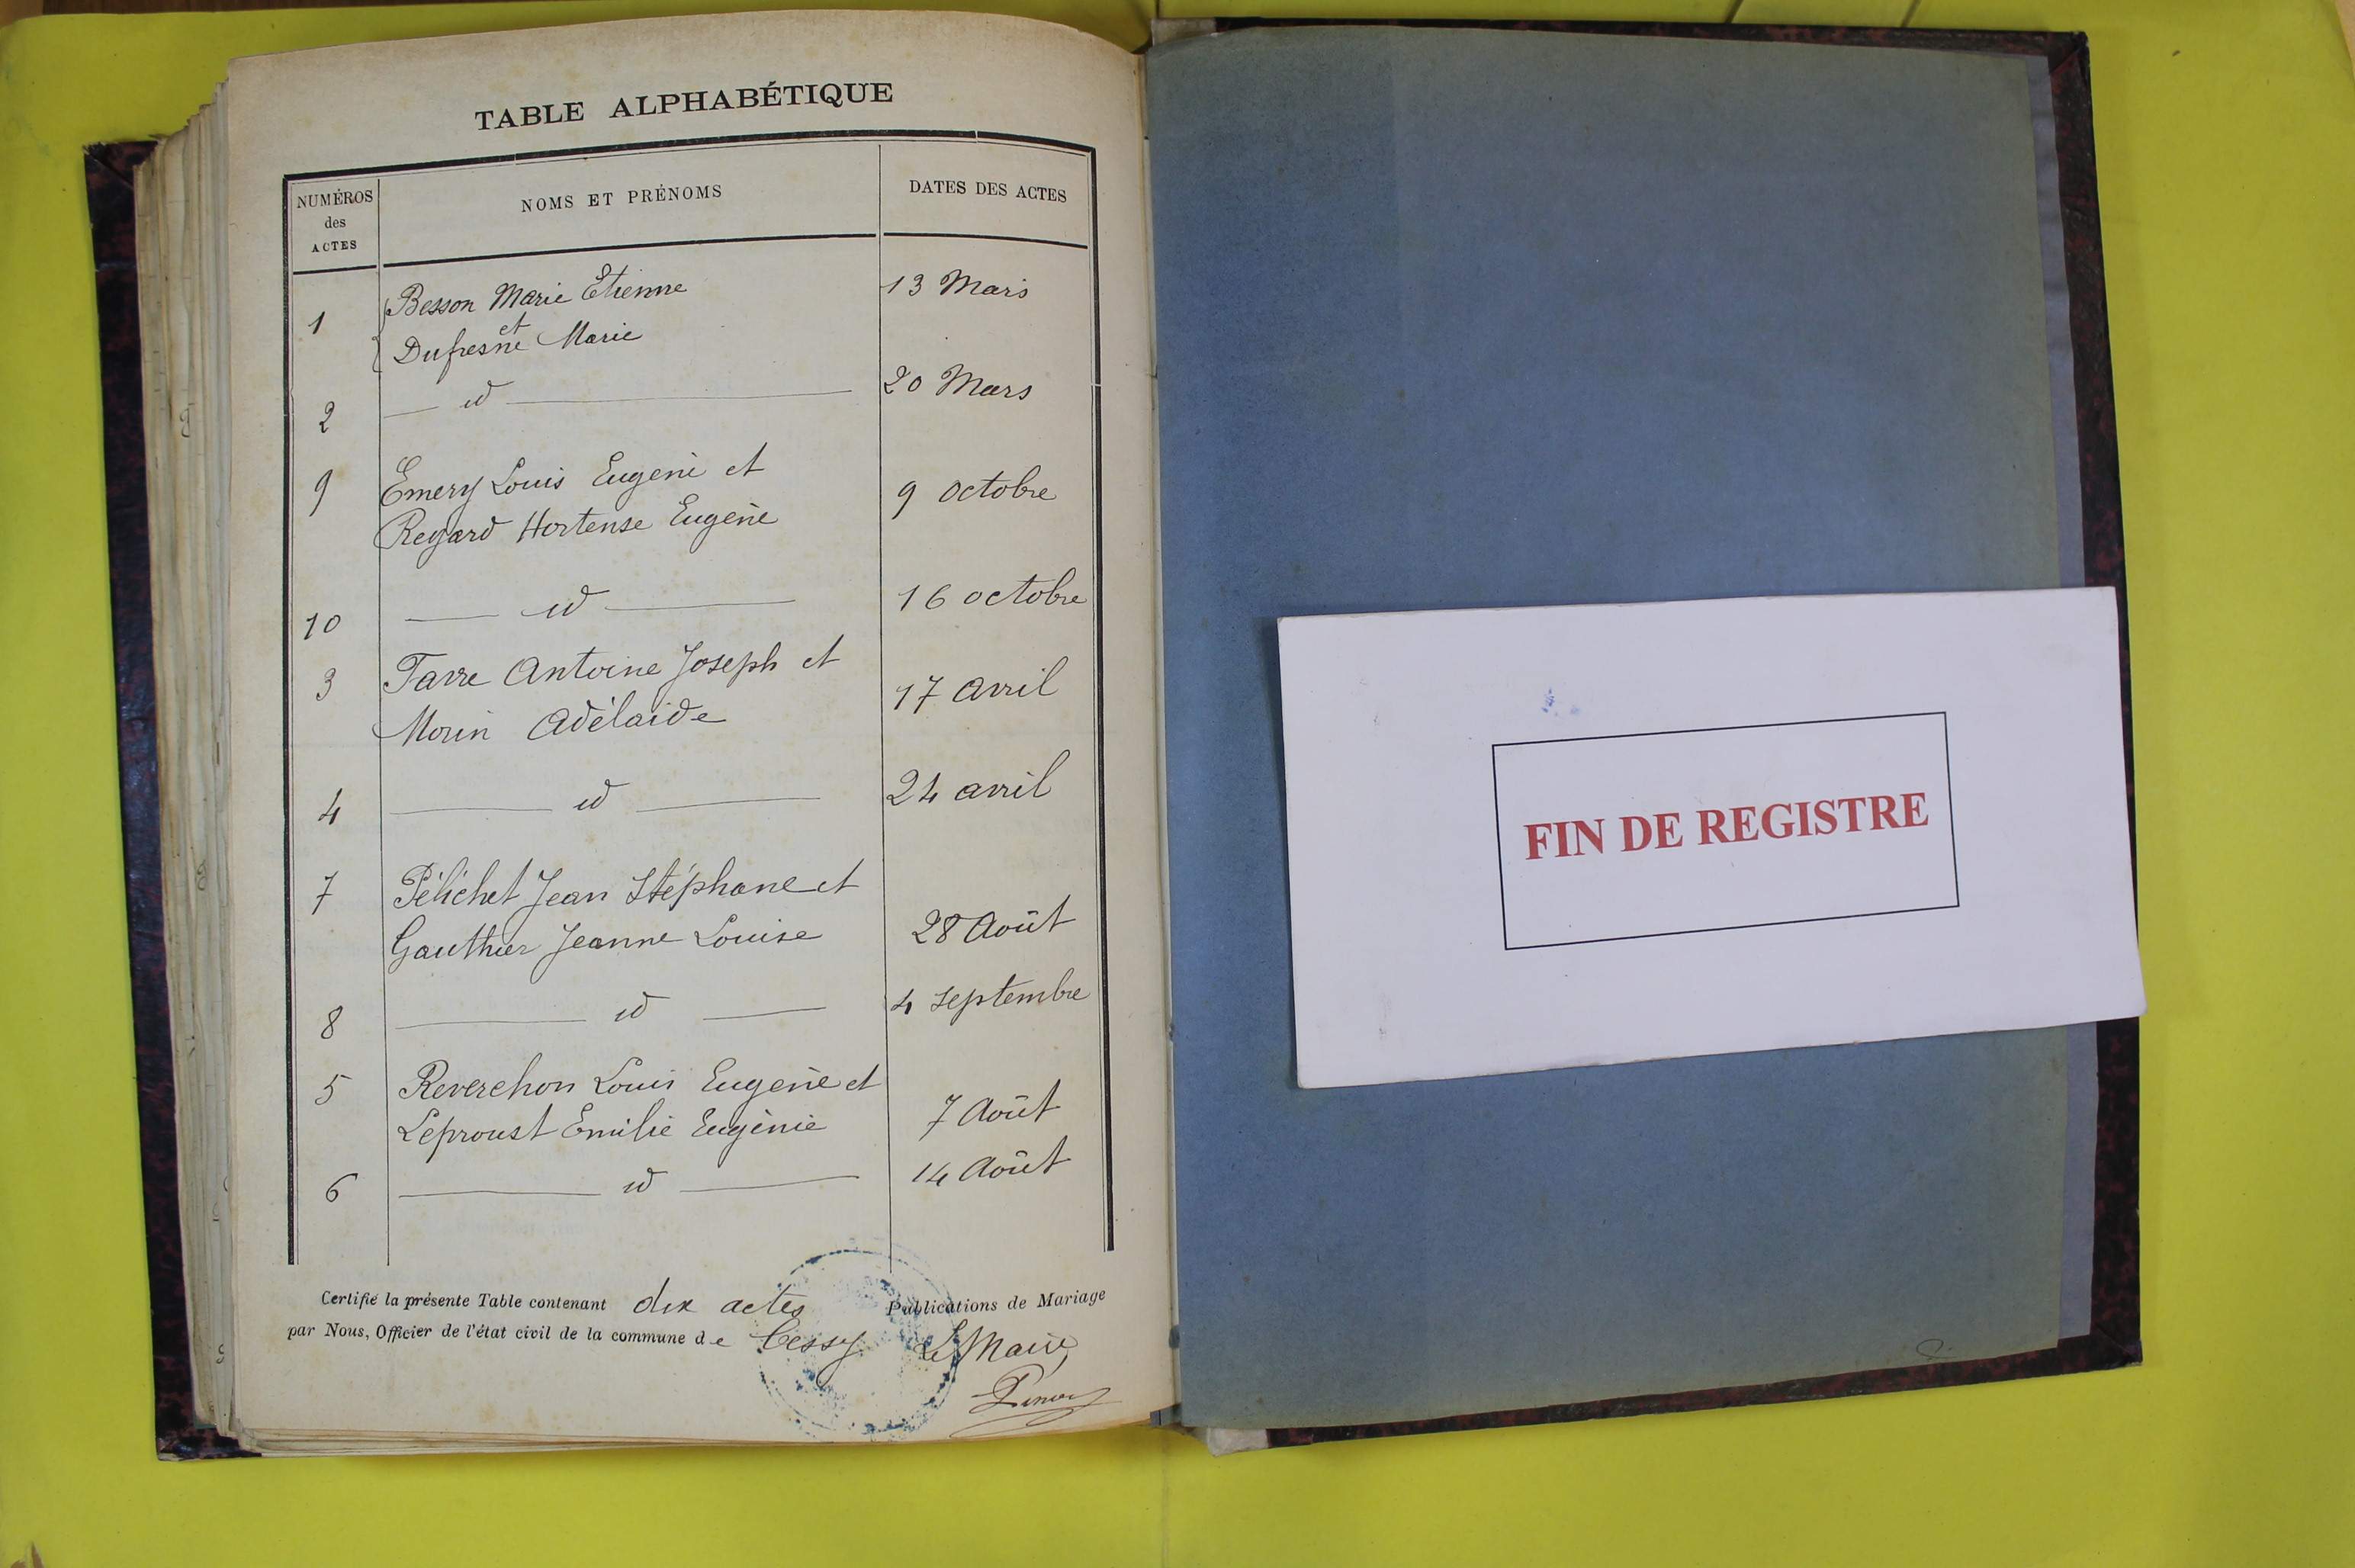 TABLE ALPHABÉTIQUE
NUMÉROS des ACTES
NOMS ET PRÉNOMS
DATES DES ACTES
1 Besson Marie Etienne 13 Mars
et
Dufresne Marie
2 id 20 Mars
9 Emery Louis Eugène et 9 octobre
Regard Hortense Eugène
10 id 16 octobre
3 Favre Antoine Joseph et 17 avril
Morin Adélaide
4 id 24 avril
7 Pélichet Jean Stéphane et
Gauthier Jeanne Louise 28 Août
8 id 4 septembre
5 Reverchon Louis Eugène et
Leproust Emilie Eugènie 7 Août
6 id 14 Août
Certifié la présente Table contenant dix actes Publications de Mariage
par Nous, Officier de l'état civil de la commune de Cessy Le Maire
FIN DE REGISTRE